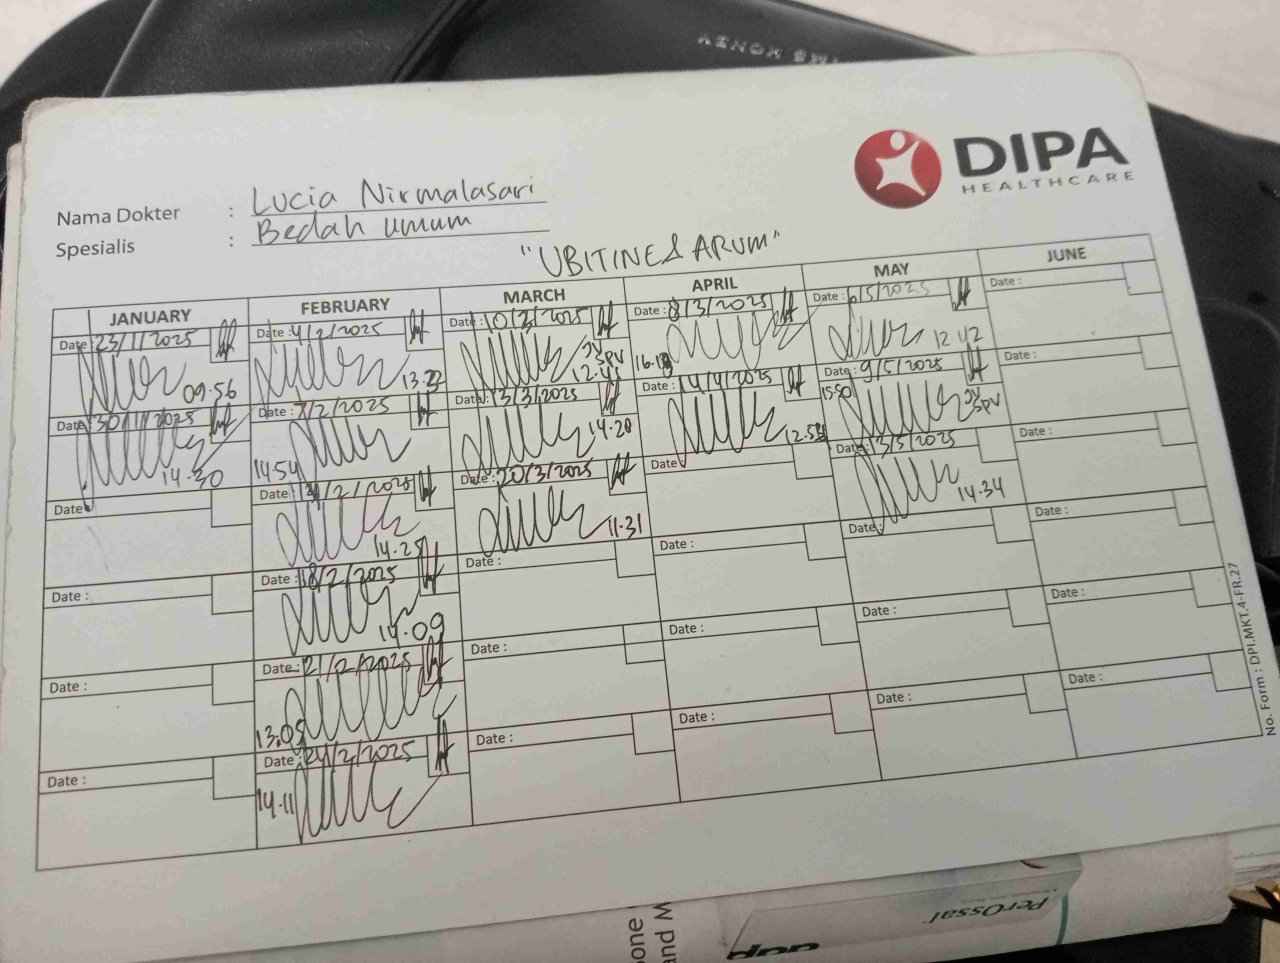 DIPA
HEALTHCARE
Nama Dokter : Lucia Nirmalasari
Spesialis : Bedah Umum
"UBITINE & ARUM"
JANUARY FEBRUARY MARCH APRIL MAY JUNE
Date : 23/1/2025
09.56
Date : 30/1/2025
14.30
Date :
Date :
Date :
Date :
Date : 4/2/2025
13.22
Date : 7/2/2025
14.54
Date : /2/2025
14.25
Date : 18/2/2025
14.09
Date : 21/2/2025
13.05
Date : 24/2/2025
14.11
Date : 10/3/2025
JV
SPV
12.41
Date : 13/3/2025
14.20
Date : 20/3/2025
11.31
Date :
Date :
Date :
Date : 8/3/2025
16.18
Date : 14/4/2025
12.58
Date :
Date :
Date :
Date :
Date : 6/5/2025
12 42
Date : 9/5/2025
15.50
JV
SPV
Date : 13/5/2025
14.34
Date :
Date :
Date :
Date :
Date :
Date :
Date :
Date :
Date :
No. Form : DPI.MKT.4-FR.27
PerOssal